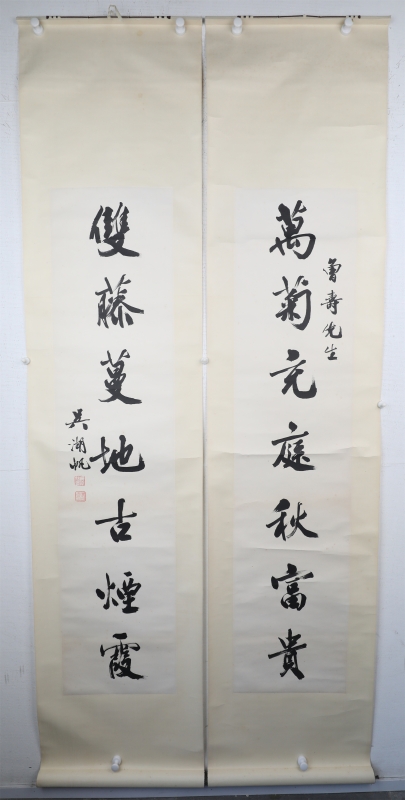 曾壽先生
萬菊充庭秋富貴
雙藤蔓地古煙霞
吳湖帆